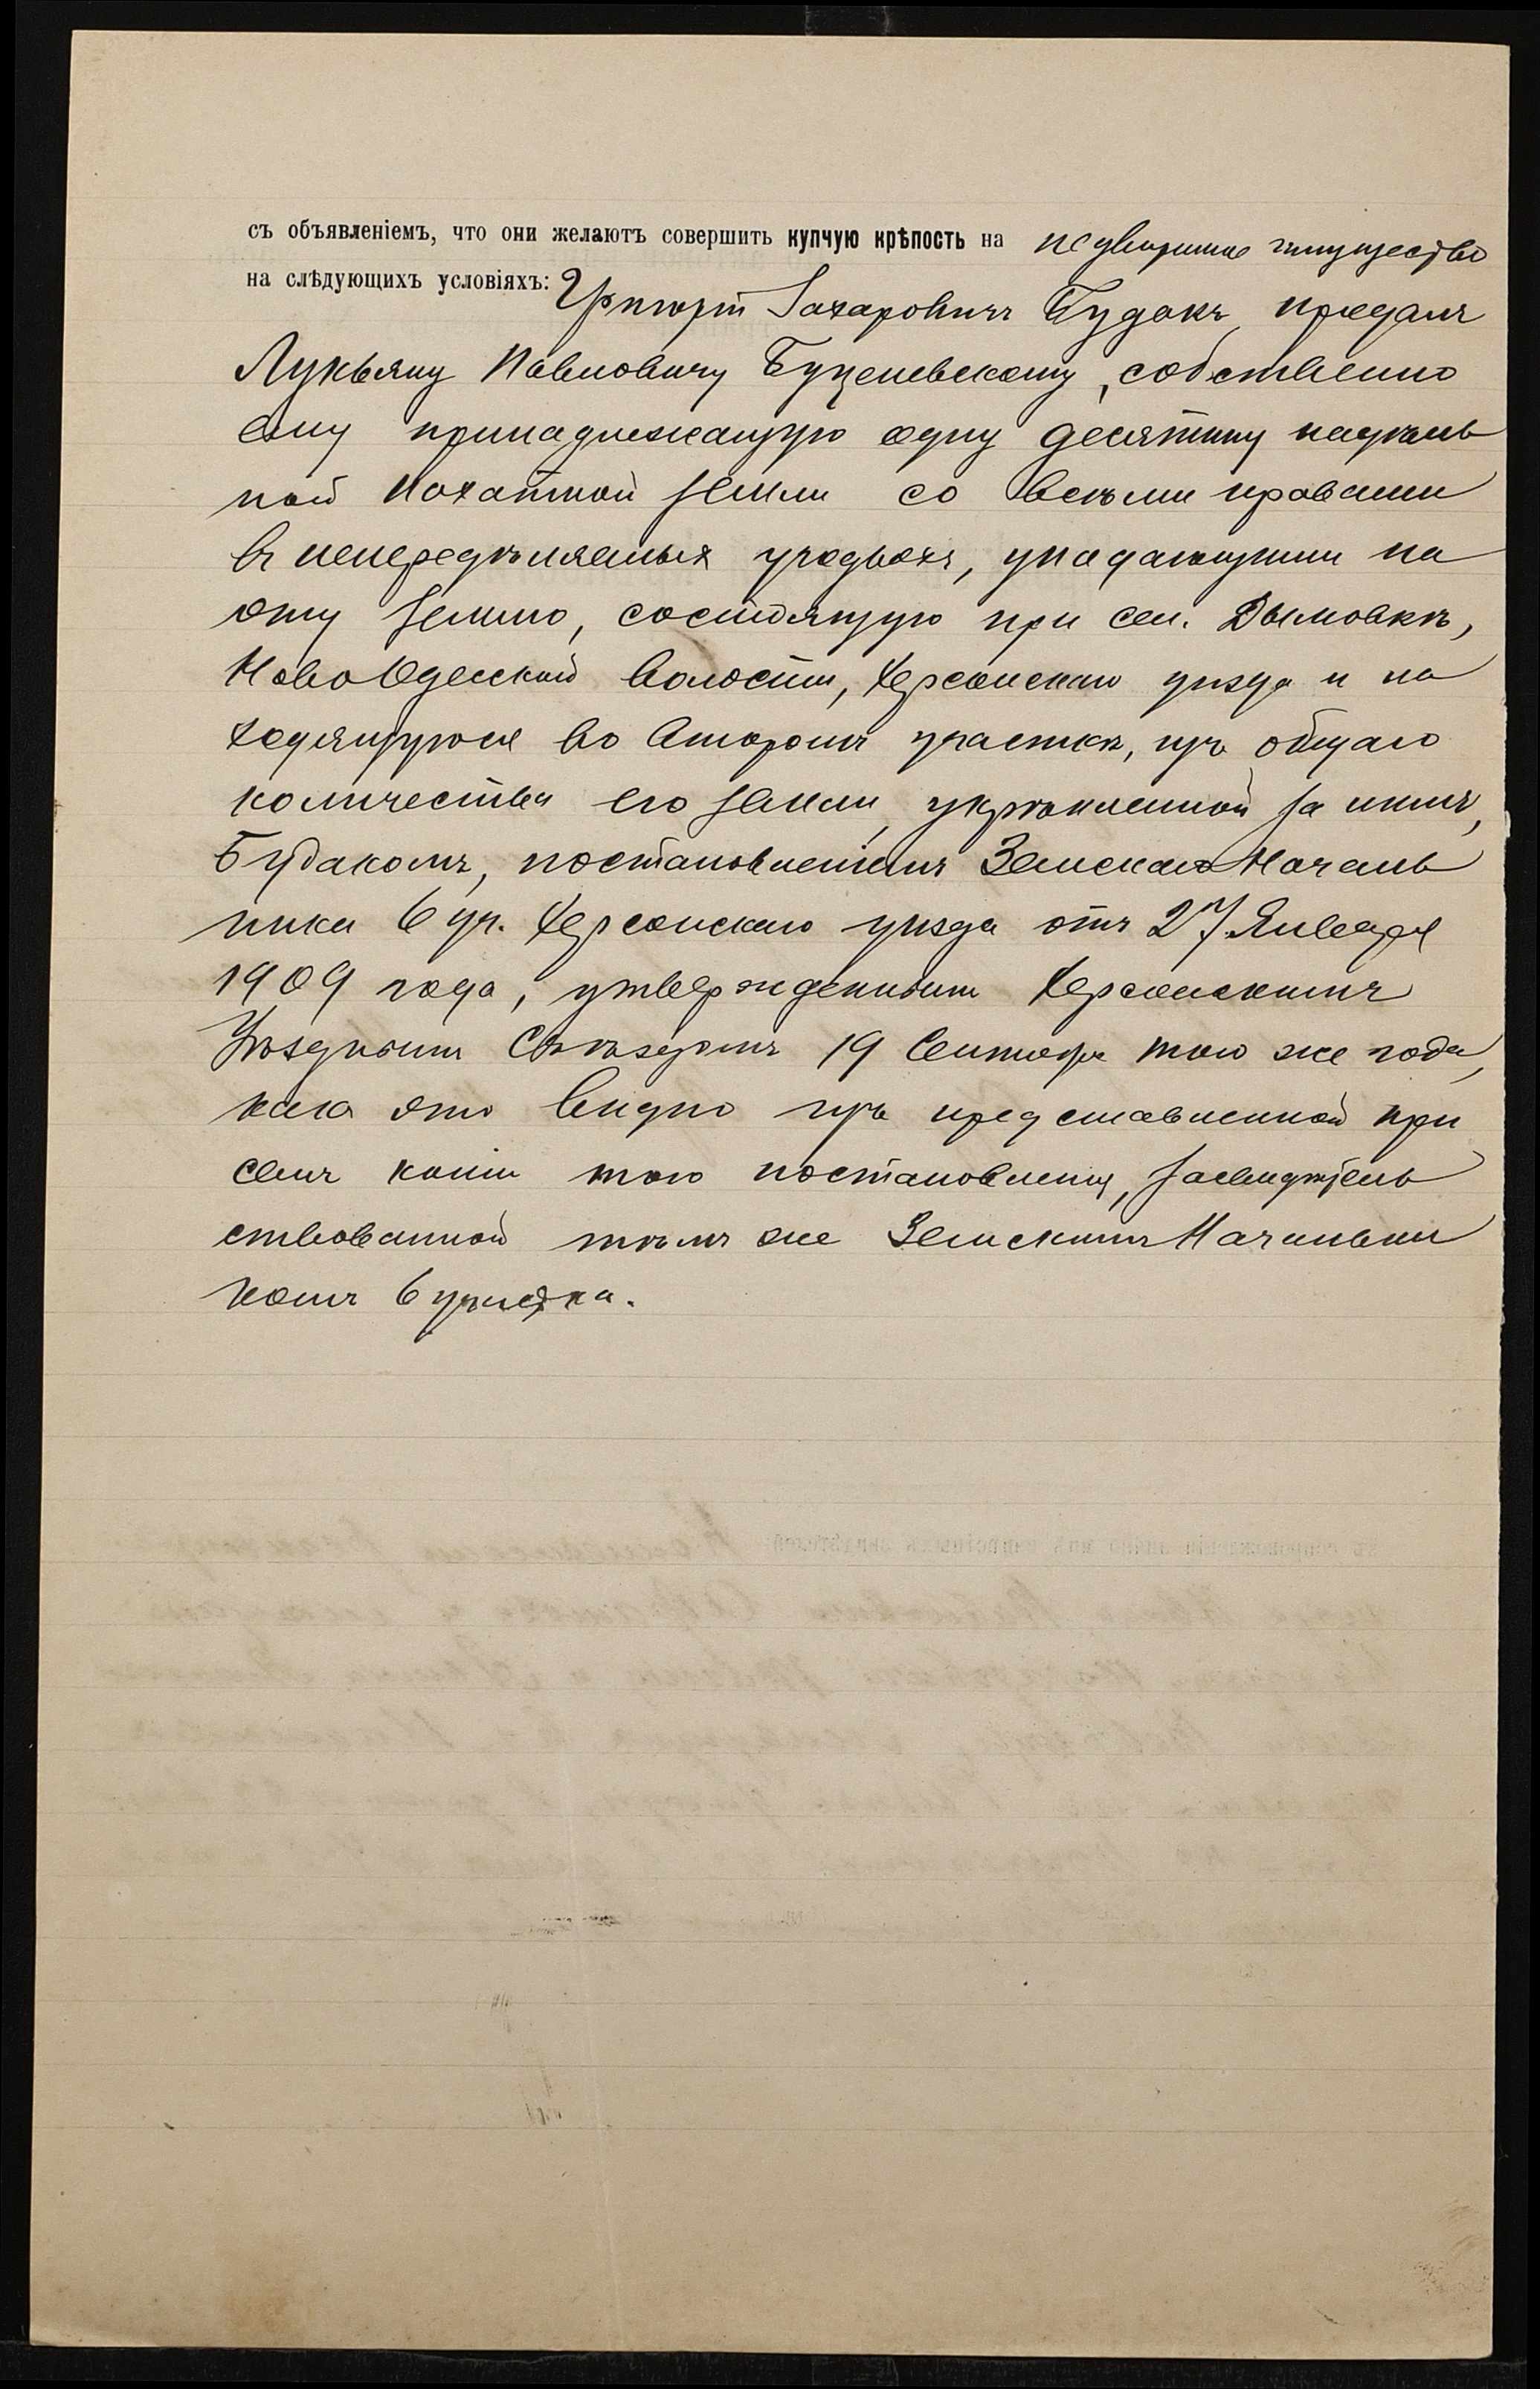 съ объявленіемъ, что они желаютъ совершить купчую крѣпость на недвижимое имущество
на слѣдующихъ условіяхъ: Григорій Захаровичъ Будакъ продалъ
Лукьяну Павловичу Буценевскому, собственно
ему принадлежащую одну десятину надѣль
ной пахатной земли со всѣми правами
въ непередѣляемых угодьяхъ, упадающими на
эту землю, состоящую при сел. Дымовкѣ,
Ново Одесской волости, Херсонскаго уѣзда и на
ходящуюся во второмъ участкѣ, изъ общаго
количества его земли, укрѣпленной за нимъ,
Будакомъ, постановленіемъ Земскаго Началь
ника 6 уч. Херсонскаго уѣзда отъ 27 Января
1909 года, утвержденнымъ Херсонскимъ
Уѣзднымъ Съѣздомъ 19 Сентября того же года,
какъ это видно изъ представленной при
семъ копіи того постановленія, засвидѣтель
ствованной тѣмъ же Земскимъ Начальни
комъ 6 участка.